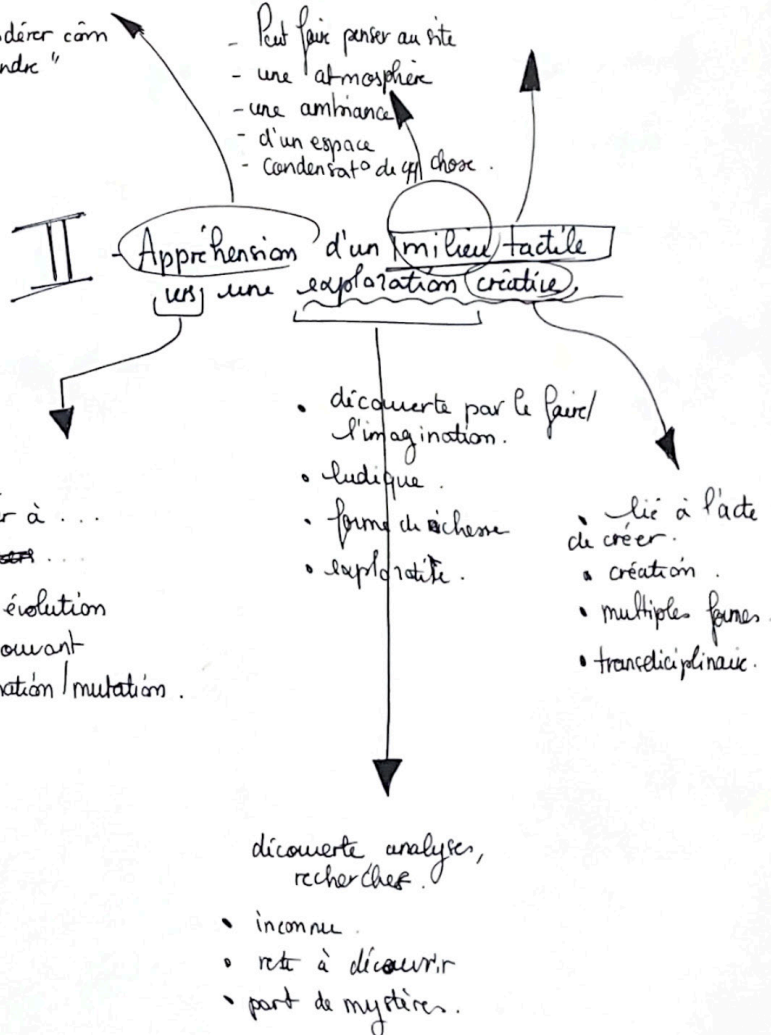 dérer com
ndre"
- Peut faire penser au site
- une atmosphère
- une ambiance
- d'un espace
- Condensat° de qq chose.
II - Appréhension d'un milieu tactile
vers une exploration créative.
• découverte par le faire/
l'imagination.
• ludique.
• forme de richesse
• explorative.
r à ...
...
évolution
ouvant
ation / mutation.
• lié à l'acte
de créer.
• création.
• multiples formes.
• transdiciplinaire.
découverte analyses,
recherches.
• inconnu.
• reste à découvrir
• part de mystères.